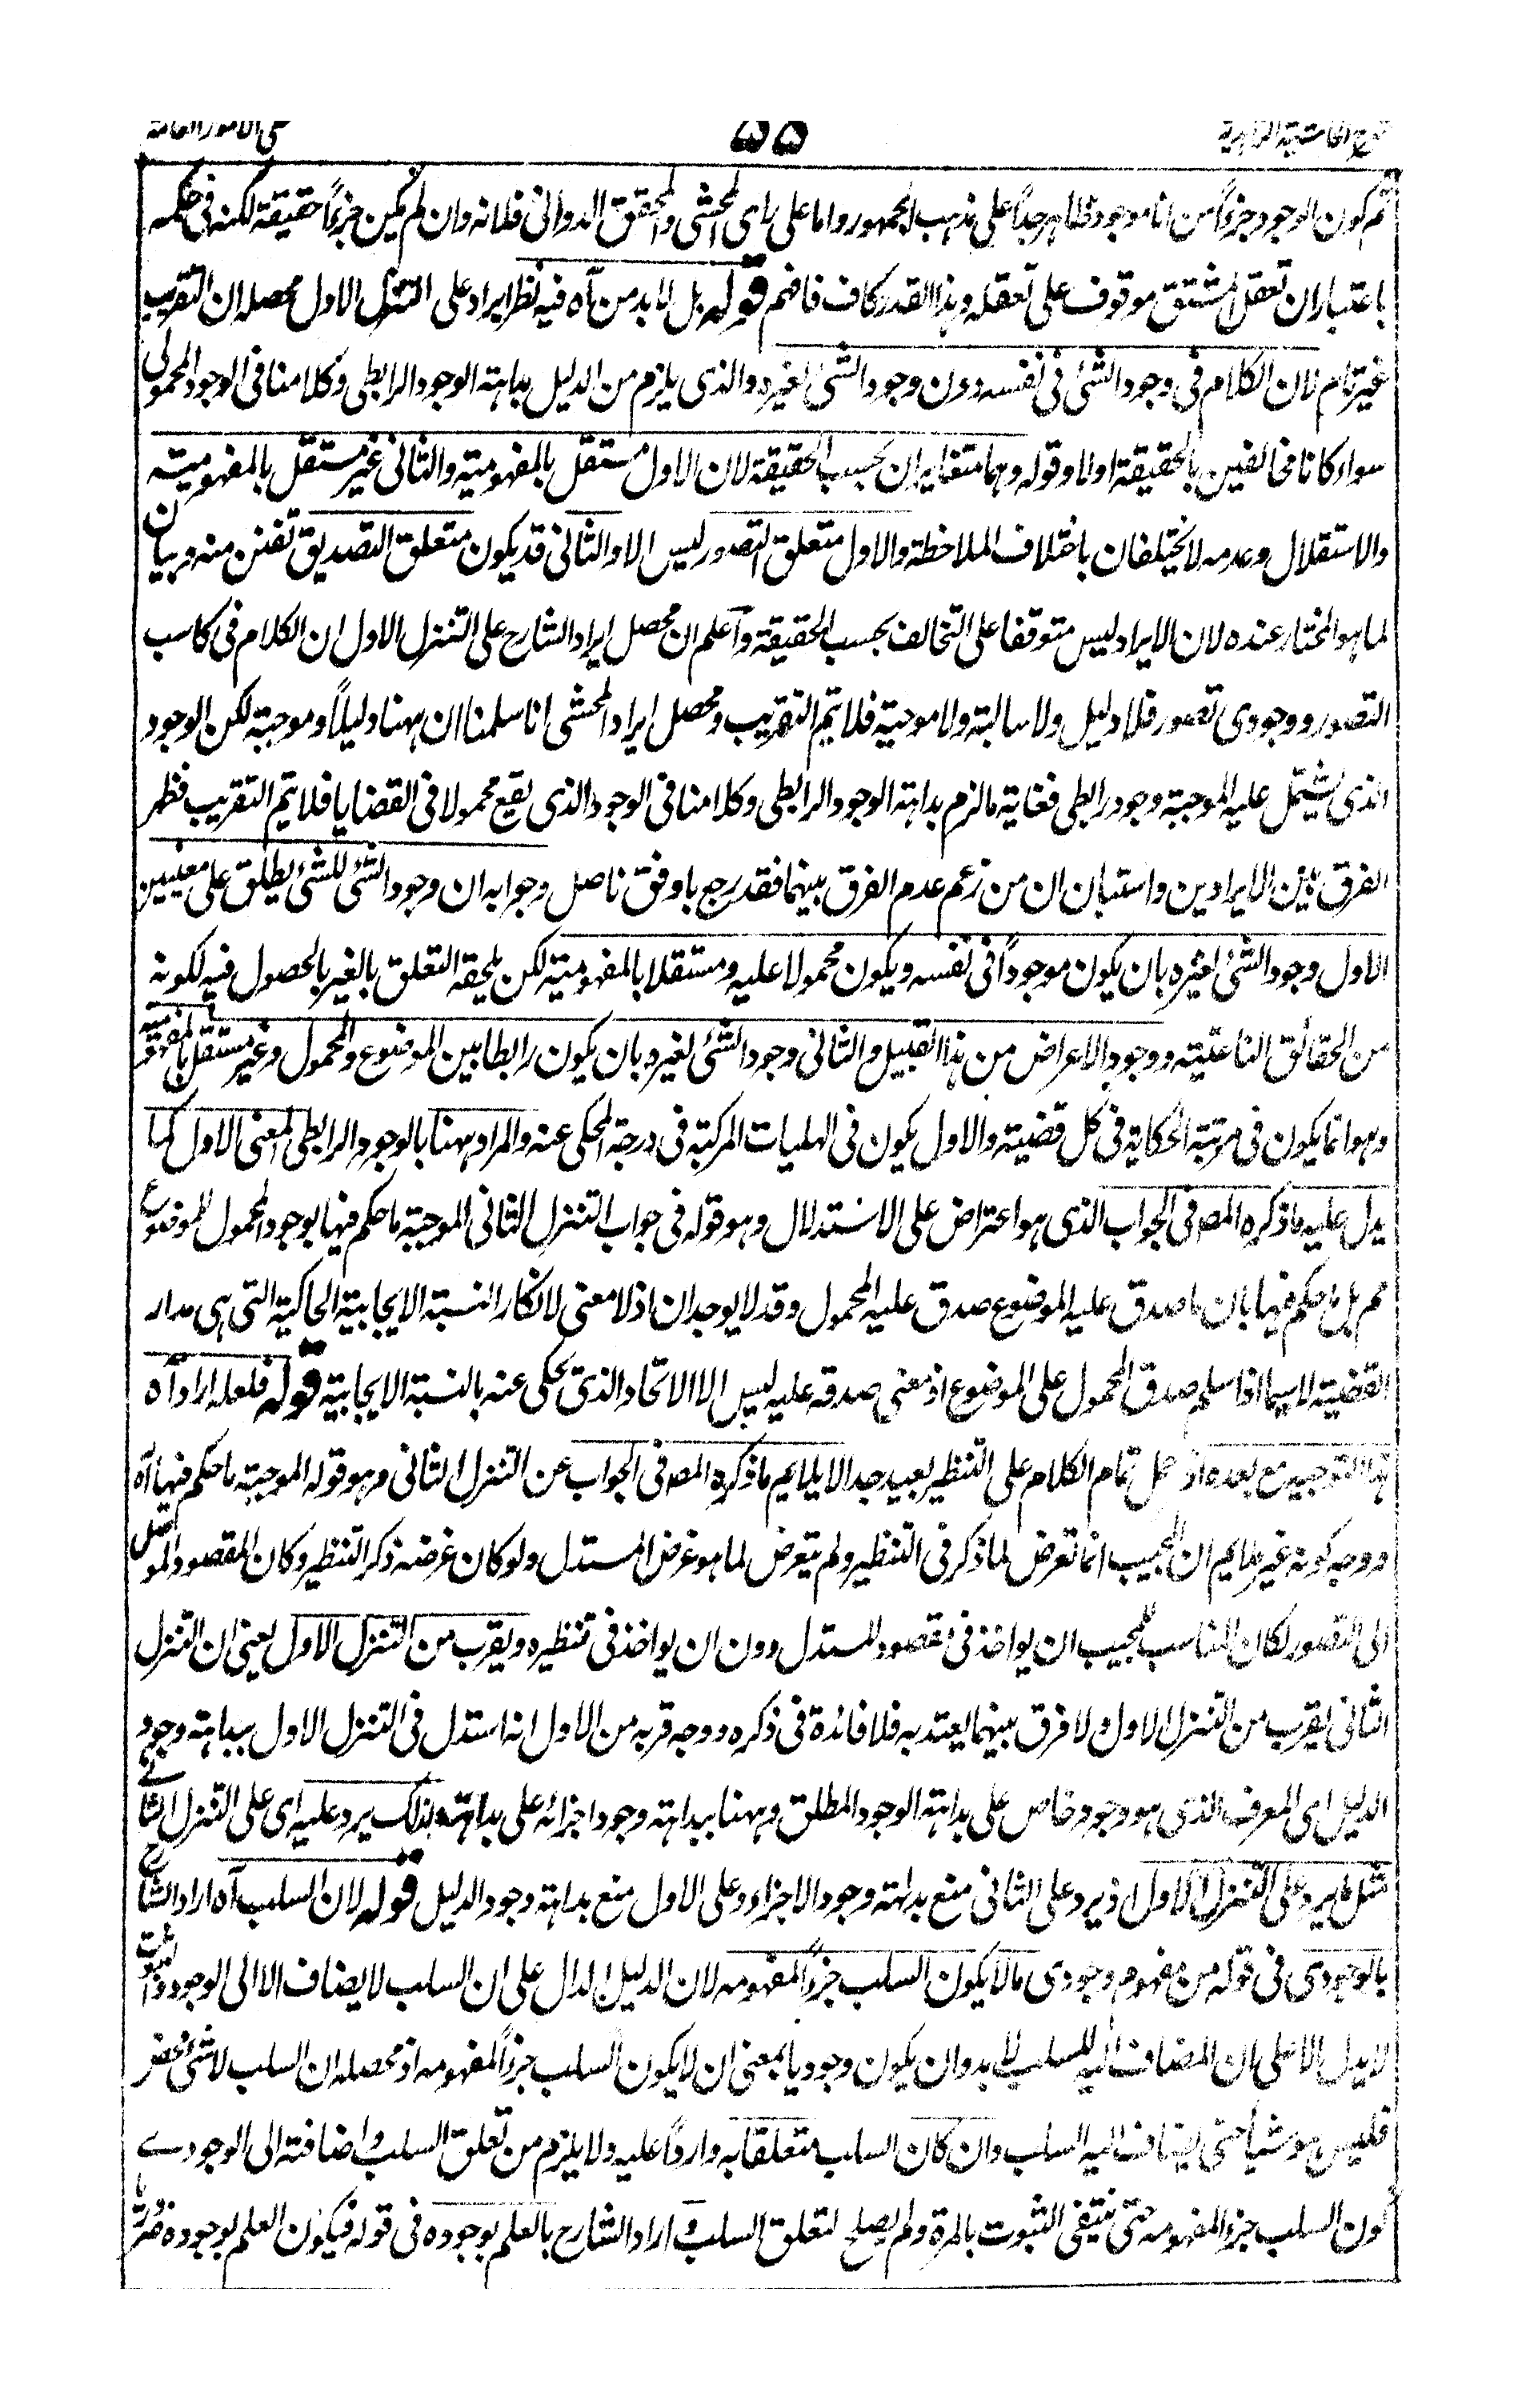 شرح الحاشية الزاهدية ۵۵ على الامور العامة
ثم كون الوجود جزءاً من انا موجود ظاهر جداً على مذهب الجمهور واما على راى المحشى والمحقق الدوانى فلانه وان لم يكن جزءاً حقيقة لكنه فى حكمه
باعتبار ان تعقل المشتق موقوف على تعقله وهذا القدر كاف فافهم قوله بل لابد من آه فيه نظر ايراد على التنزل الاول محصله ان التقريب
غير تام لان الكلام فى وجود الشئ فى نفسه ودون وجود الشئ لغيره والذى يلزم من الدليل بداهة الوجود الرابطى وكلامنا فى الوجود المحمولى
سواء كانا مخالفين بالحقيقة اولا وقوله وهما متغايران بحسب الحقيقة لان الاول مستقل بالمفهومية والثانى غير مستقل بالمفهومية
والاستقلال وعدمه لا يختلفان باختلاف الملاحظة والاول متعلق التصور ليس الا والثانى قد يكون متعلق التصديق تفنن منه وبيان
لما هو المختار عنده لان الايراد ليس متوقفا على التخالف بحسب الحقيقة وآعلم ان محصل ايراد الشارح على التنزل الاول ان الكلام فى كاسب
التصور ووجودى تصور فلا دليل ولا سالبة ولا موجبة فلا يتم التقريب ومحصل ايراد المحشى انا سلمنا ان ههنا دليلاً وموجبة لكن الوجود
الذى يشتمل عليه الموجبة وجود رابطى فغاية ما لزم بداهة الوجود الرابطى وكلامنا فى الوجود الذى يقع محمولا فى القضايا فلا يتم التقريب فظهر
الفرق بين الايرادين واستبان ان من زعم عدم الفرق بينهما فقد رجع باوفق ناصل وجوابه ان وجود الشئ للشئ يطلق على معنيين
الاول وجود الشئ لغيره بان يكون موجوداً فى نفسه ويكون محمولا عليه ومستقلا بالمفهومية لكن يلحقه التعلق بالغير بالحصول فيه لكونه
من الحقائق الناعتية ووجود الاعراض من هذا القبيل والثانى وجود الشئ لغيره بان يكون رابطا بين الموضوع والمحمول وغير مستقل بالمفهومية
وهو انما يكون فى مرتبة الحكاية فى كل قضية والاول يكون فى الهليات المركبة فى درجة المحكى عنه والمراد ههنا بالوجود الرابطى المعنى الاول كما
يدل عليه ما ذكره المصـ فى الجواب الذى هو اعتراض على الاستدلال وهو قوله فى جواب التنزل الثانى الموجبة ما حكم فيها بوجود المحمول للموضوع
مم بل ما حكم فيها بان ما صدق عليه الموضوع صدق عليه المحمول وقد لا يوجدان اذ لا معنى لانكار النسبة الايجابية الحاكية التى هى مدار
القضية لا سيما اذا سلم صدق المحمول على الموضوع اذ معنى صدقه عليه ليس الا الاتحاد الذى يحكى عنه بالنسبة الايجابية قوله فلعله اراد آه
هذا التوجيه مع بعده اذ حمل تمام الكلام على التنظير بعيد جدا لا يلايم ما ذكره المصـ فى الجواب عن التنزل الثانى وهو قوله الموجبة ما حكم فيها آه
ووجه كونه غير ملايم ان المجيب انما تعرض لما ذكر فى التنظير ولم يتعرض لما هو غرض المستدل ولو كان غرضه ذكر التنظير وكان المقصود الموصل
الى التصور لكان المناسب للمجيب ان يواخذ فى مقصود المستدل دون ان يواخذ فى تنظيره ويقرب من التنزل الاول يعنى ان التنزل
الثانى يقرب من التنزل الاول ولا فرق بينهما يعتد به فلا فائدة فى ذكره ووجه قربه من الاول انه استدل فى التنزل الاول ببداهة وجود
الدليل اى المعرف الذى هو وجود خاص على بداهة الوجود المطلق وههنا ببداهة وجود اجزائه على بداهته ولذلك يرد عليه اى على التنزل الثانى
مثل ما يرد على التنزل الاول اذ يرد على الثانى منع بداهة وجود الاجزاء وعلى الاول منع بداهة وجود الدليل قوله لان السلب آه اراد الشارح
بالوجودى فى قوله من مفهوم وجودى ما لا يكون السلب جزءاً لمفهومه لان الدليل الدال على ان السلب لا يضاف الا الى الوجود والثبوت
لا يدل الا على ان المضاف اليه للسلب لا بد وان يكون وجوديا بمعنى ان لا يكون السلب جزءاً لمفهومه اذ محصله ان السلب لا شئ محض
فليس هو شيأ حتى يضاف اليه السلب وان كان السلب متعلقا به وارداً عليه ولا يلزم من تعلق السلب واضافته الى الوجودى
كون السلب جزء المفهومه حتى ينتفى الثبوت بالمرة ولم يصلح لتعلق السلب و اراد الشارح بالعلم بوجوده فى قوله فيكون العلم بوجوده ضروريا